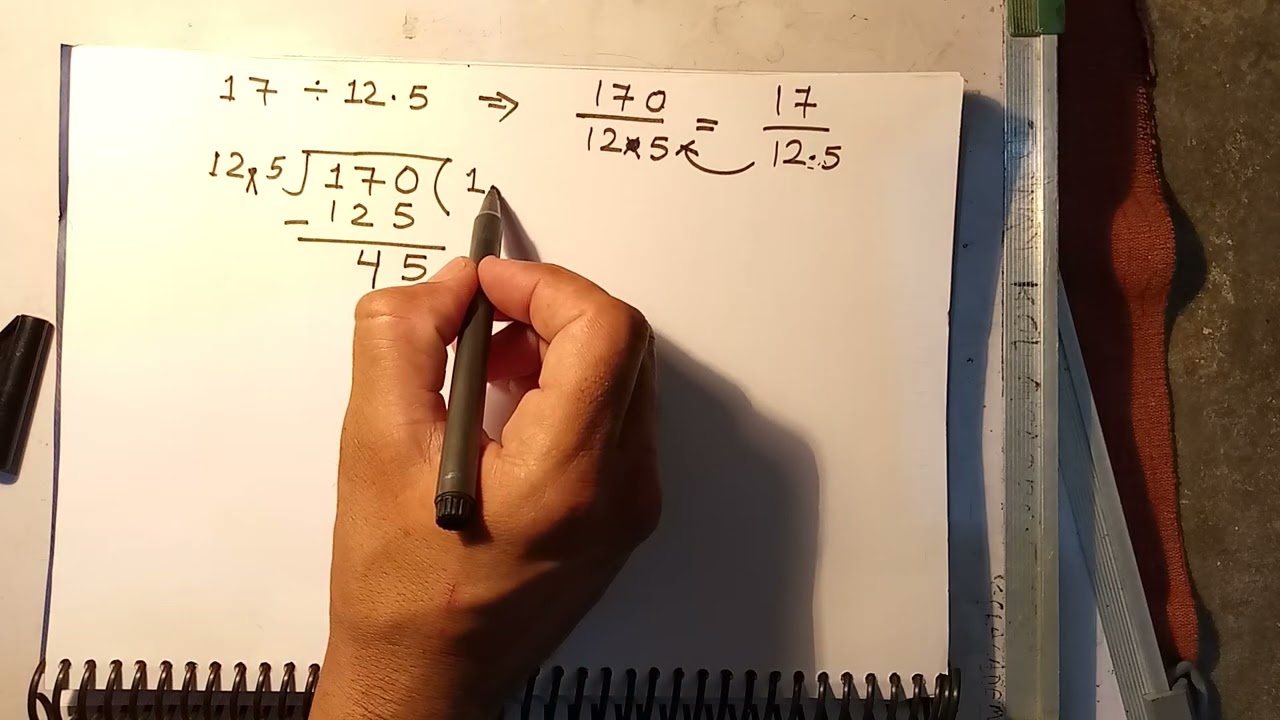 17 ÷ 12.5 ⇒ 170/12 5 = 17/12.5
12 5 ) 170 ( 1.
- 125
45